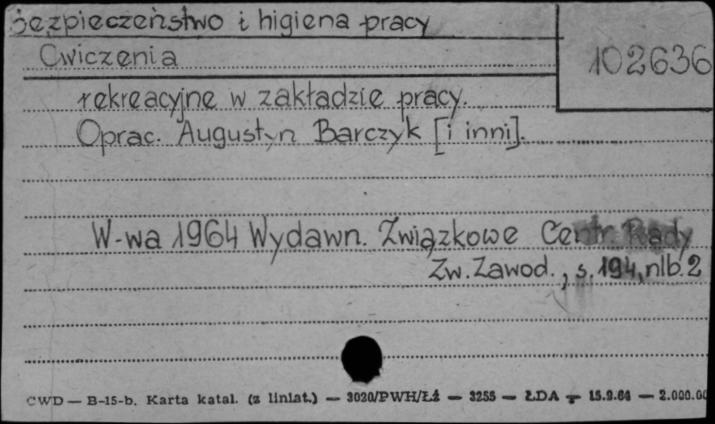 Bezpieczeństwo i higiena pracy
Cwiczenia
102636
rekreacyjne w zakładzie pracy.
Oprac. Augustyn Barczyk [i inni].
W-wa 1964 Wydawn. Związkowe Centr. Rady
Zw. Zawod., s. 194, nlb. 2
CWD — B-15-b. Karta katal. (z liniat.) — 3020/PWH/Łź — 3255 — ŁDA — 15.9.64 — 2.000.00